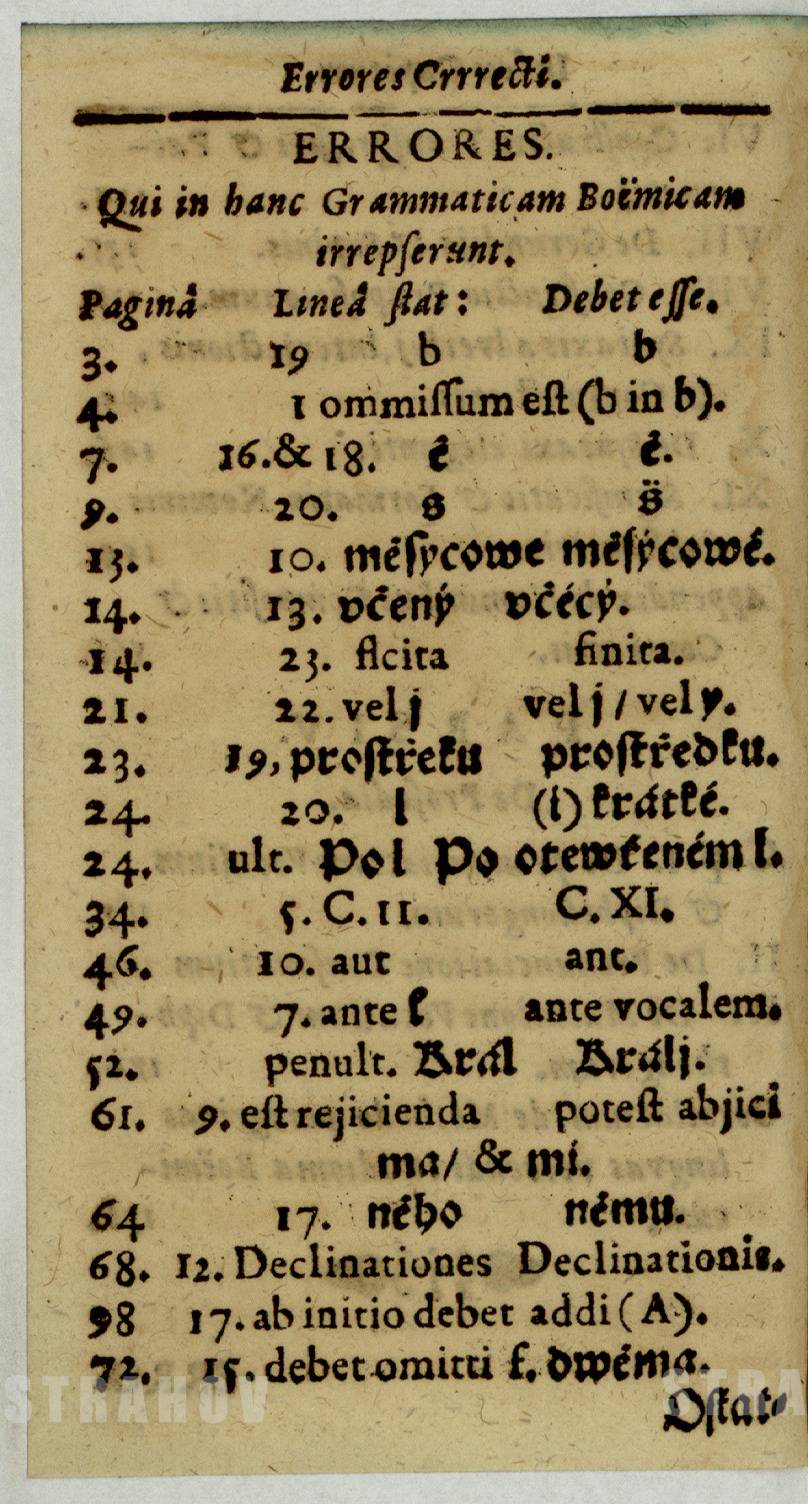 Errores Crrrecti.
ERRORES.
Qui in hanc Grammaticam Boëmicam
irrepſerunt.
Paginâ Lineâ ſtat: Debet eſſe.
3. 19 b b
4. 1 ommiſſum eſt (b in b).
7. 16. & 18. ê é.
9. 20. s s̈
13. 10. měſycowe měſýcowé.
14. 13. včený včécý.
14. 23. flcita finita.
21. 22. vel j vel j / vel y.
23. 19, proſtřeku proſtředku.
24. 20. l (l) krátké.
24. ult. Pol Po otewřeném l.
34. 5. C. 11. C. XI.
46. 10. aut ant.
49. 7. ante ſ ante vocalem.
52. penult. Král Králj.
61. 9. eſt rejicienda poteſt abjici
ma/ & mi.
64 17. něho němu.
68. 12. Declinationes Declinationis.
98 17. ab initio debet addi (A).
72. 15. debet omitti ſ. dwěma.
Oſtat⸗
STRAHOV